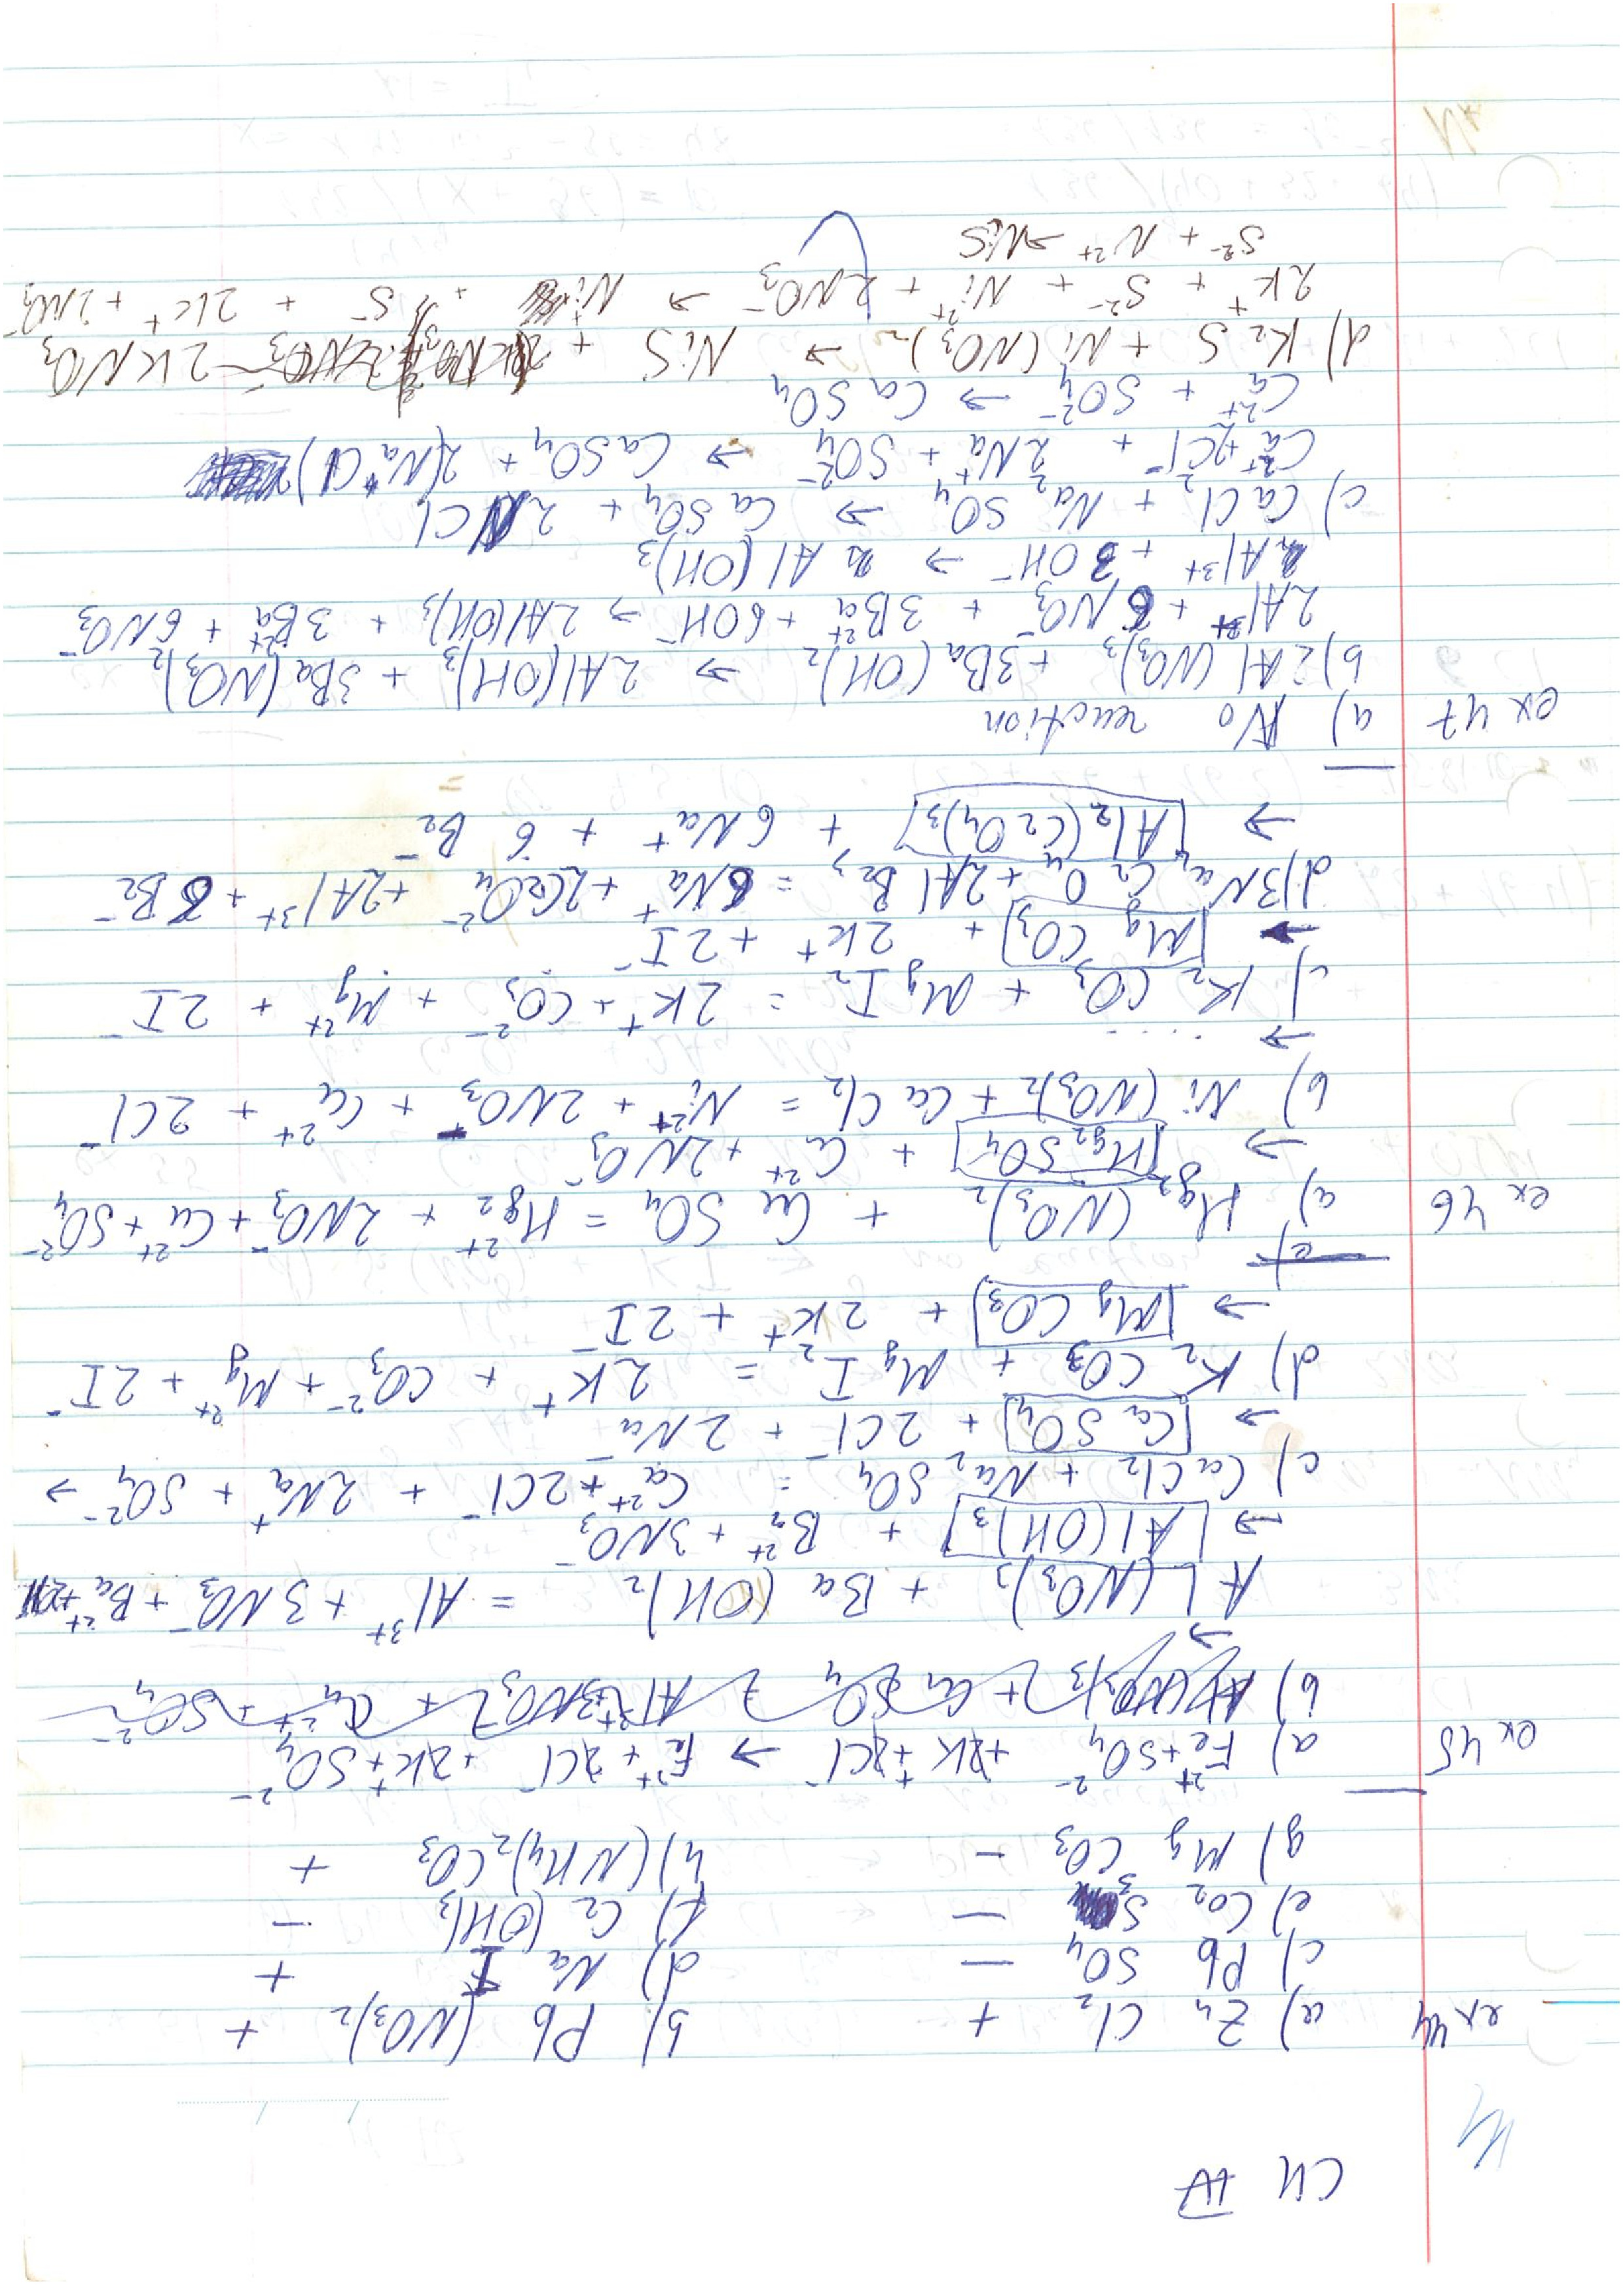 CH IV
ex 44 a) Zn Cl₂ + b) Pb (NO₃)₂ +
c) Pb SO₄ − d) Na I +
e) Co₂ S₃ − f) C₂ (OH)₃ −
g) Mg CO₃ − h) (NH₄)₂ CO₃ +
ex 45 a) Fe²⁺ + SO₄²⁻ + 2K⁺ + 2Cl⁻ → Fe²⁺ + 2Cl⁻ + 2K⁺ + SO₄²⁻
b)
Al (NO₃)₃ + Ba (OH)₂ = Al³⁺ + 3NO₃⁻ + Ba²⁺ +
→ Al(OH)₃ + Ba²⁺ + 3NO₃⁻
c) CaCl₂ + Na₂ SO₄ = Ca²⁺ + 2Cl⁻ + 2Na⁺ + SO₄²⁻ →
→ Ca SO₄ + 2Cl⁻ + 2Na⁻
d) K₂ CO₃ + Mg I₂ = 2K⁺ + CO₃²⁻ + Mg²⁺ + 2I⁻
→ Mg CO₃ + 2K⁺ + 2I⁻
ex 46 a) Hg₂ (NO₃)₂ + Ca SO₄ = Hg₂²⁺ + 2NO₃⁻ + Ca²⁺ + SO₄²⁻
→ Hg₂ SO₄ + Ca²⁺ + 2NO₃⁻
b) Ni (NO₃)₂ + Ca Cl₂ = Ni²⁺ + 2NO₃⁻ + Ca²⁺ + 2Cl⁻
→ ....
c) K₂ CO₃ + Mg I₂ = 2K⁺ + CO₃²⁻ + Mg²⁺ + 2I⁻
→ Mg CO₃ + 2K⁺ + 2I⁻
d) 3Na₂ C₂ O₄ + 2Al Br₃ = 6Na⁺ + 2C₂O₄²⁻ + 2Al³⁺ + 6Br⁻
→ Al₂ (C₂O₄)₃ + 6Na⁺ + 6 Br⁻
ex 47 a) No reaction
b) 2Al (NO₃)₃ + 3Ba (OH)₂ → 2Al(OH)₃ + 3Ba (NO₃)₂
2Al³⁺ + 6NO₃⁻ + 3Ba²⁺ + 6OH⁻ → 2Al(OH)₃ + 3Ba²⁺ + 6NO₃⁻
Al³⁺ + 3OH⁻ → Al(OH)₃
c) CaCl₂ + Na₂ SO₄ → Ca SO₄ + 2 Cl
Ca²⁺ + 2Cl⁻ + 2Na⁺ + SO₄²⁻ → CaSO₄ + 2(Na⁺Cl)
Ca²⁺ + SO₄²⁻ → CaSO₄
d) K₂ S + Ni (NO₃)₂ → NiS + 2KNO₃
2K⁺ + S²⁻ + Ni²⁺ + 2NO₃⁻ → Ni + S + 2K⁺ + 2NO₃⁻
S²⁻ + N²⁺ → NiS